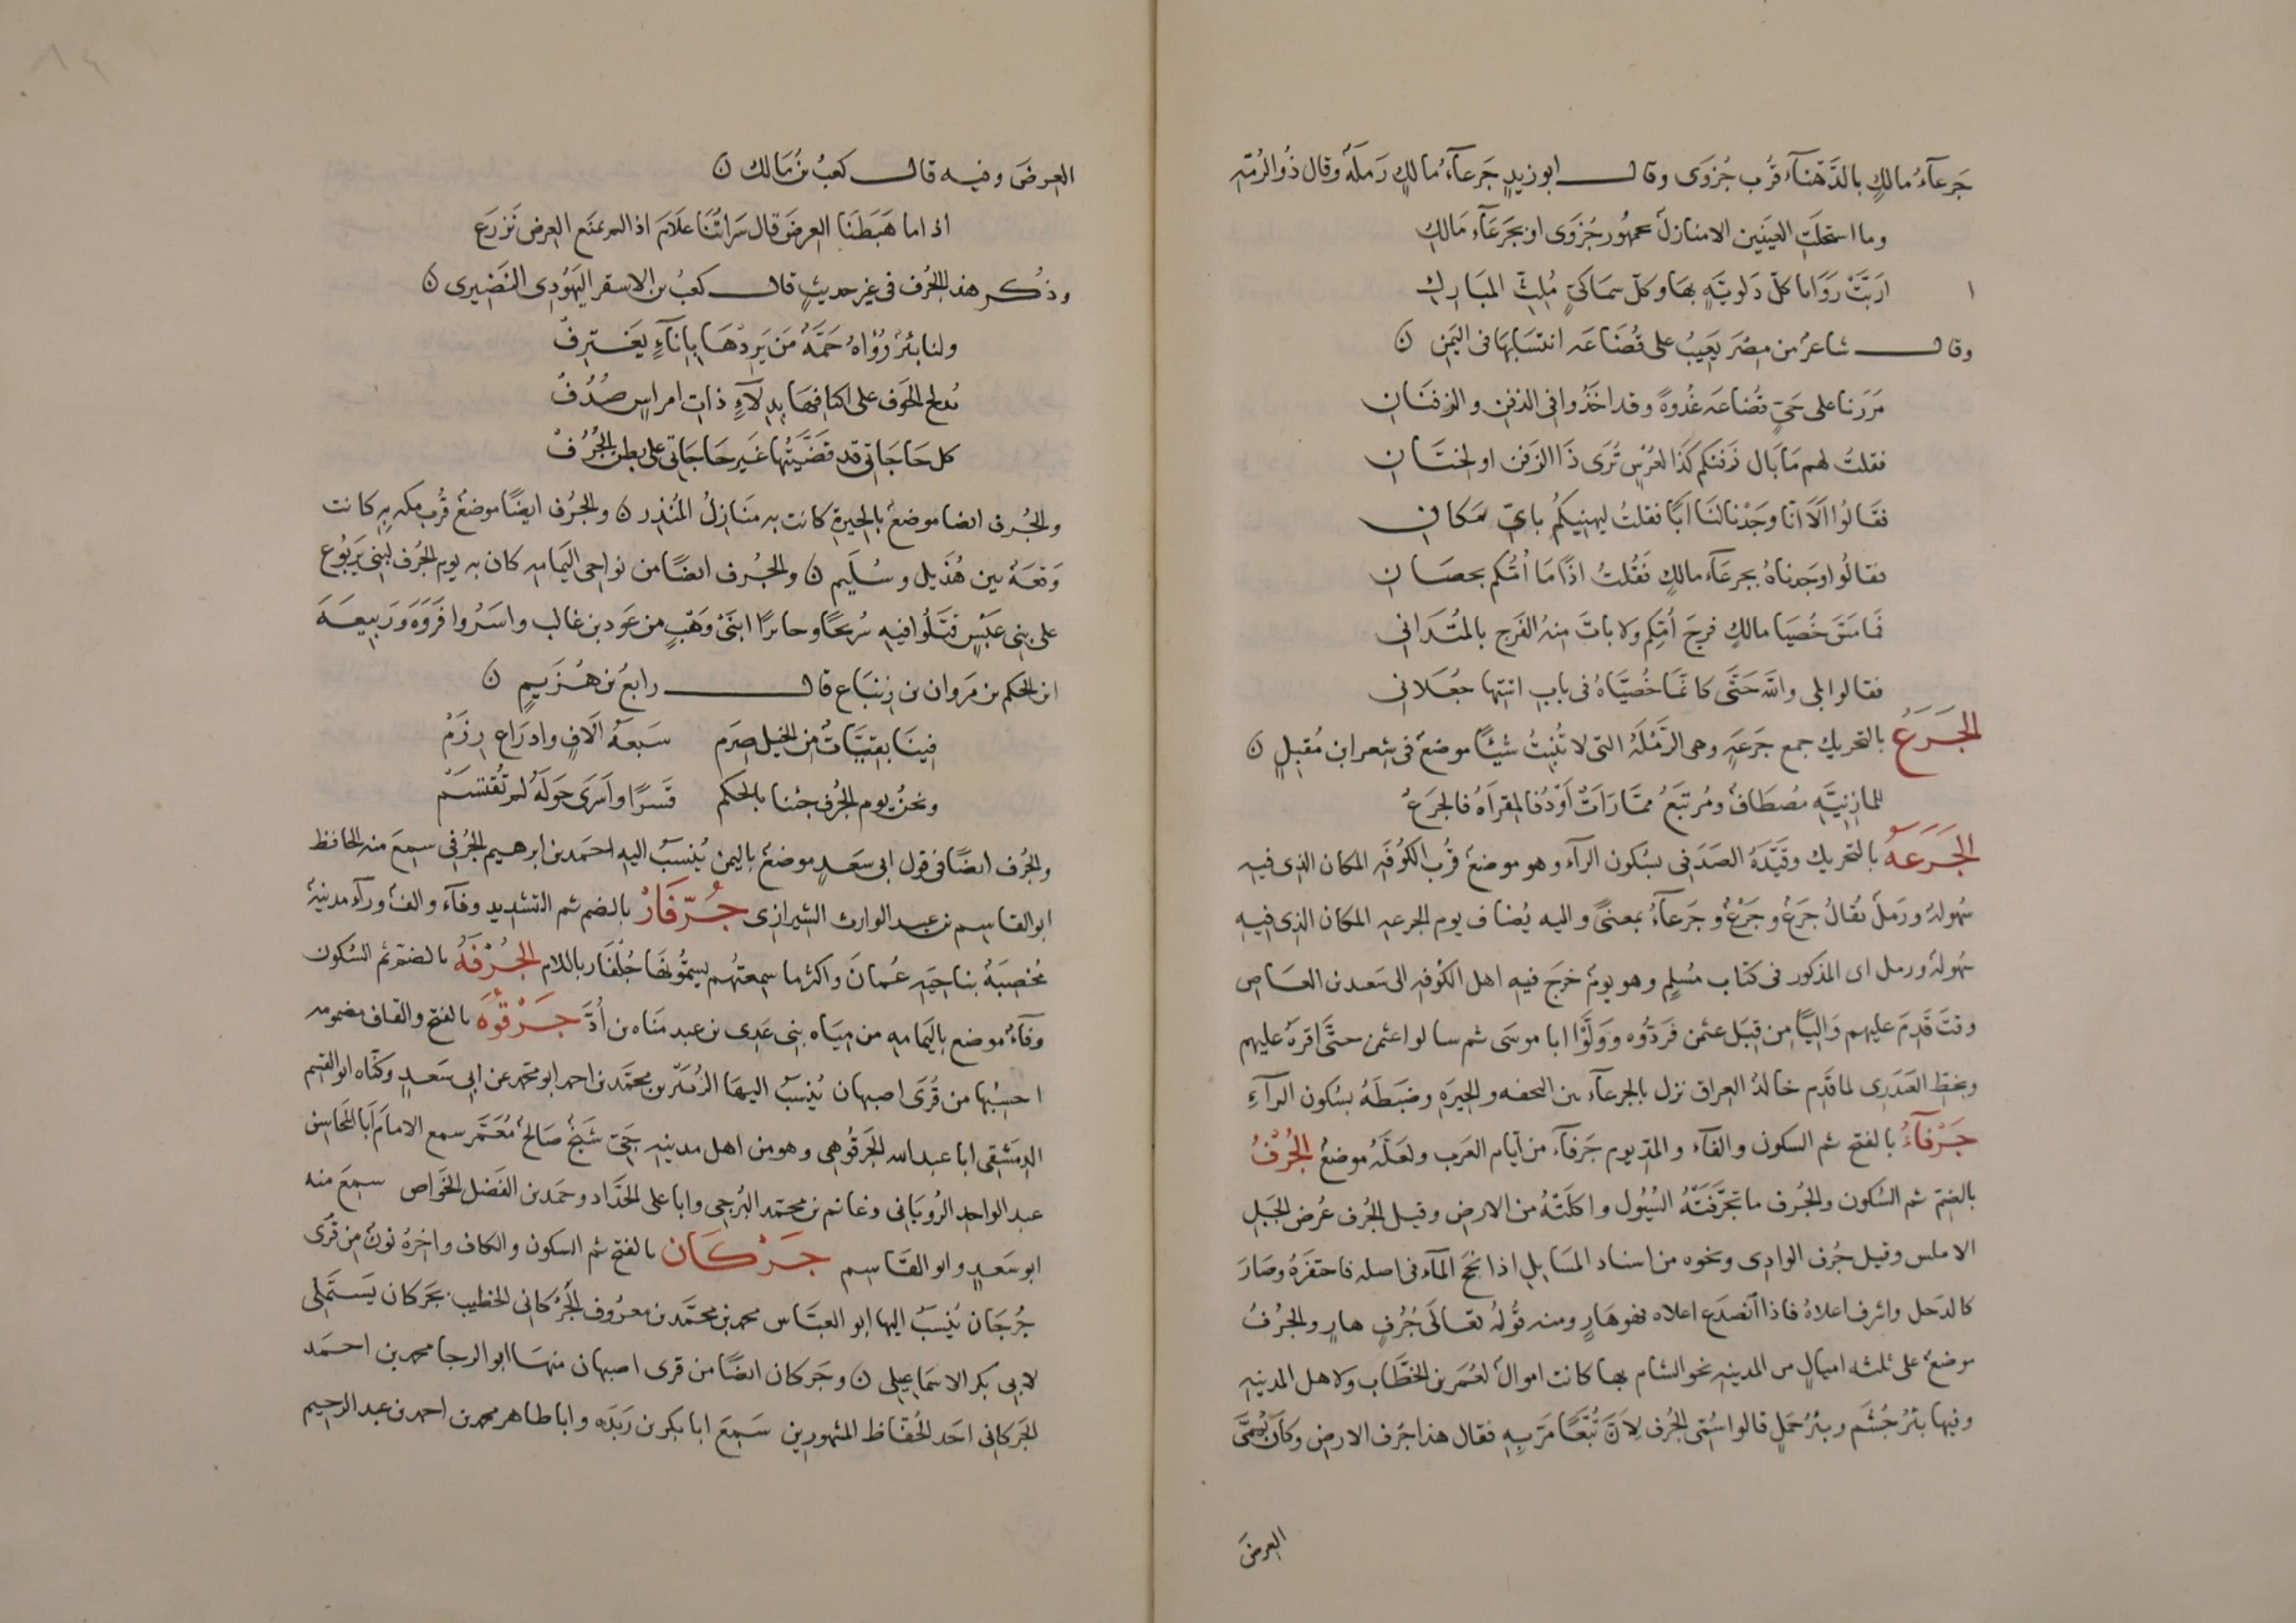 جَرعآءُ مالكٍ بالدَّهنآء قُرب جُزوَى وقال ابو زيدٍ جَرعآءُ مالكٍ رَملَةٌ وقال ذُو الرُمّه
وما استحلَتِ العَينَين الا منازلٌ بجمهُور جُزوَى او بجَرعَآء مَالكِ
اربَّتْ رَوَايا كلّ دَلويَّهٍ بهَا وكلّ سمَاكيٍّ مُلِثِّ المبَارِكِ
وقال شاعرٌ من مضَر يَعِيبُ على قُضَاعَه انتسَابهَا فى اليَمَنِ ن
مَرَرنا على حَيّ قضُاعه غُدوةً وقد اخَذُوا فى الزفنِ والزفنَانِ
فقلتُ لهم مَا بَال زفنكم كَذَا لعُرسٍ تُرَى ذَا الزَفن او لختَانِ
فقَالُوا اَلَا انّا وجَدْنا لنَا اَبًا فقلتُ ليهنِيكُم باىّ مَكانِ
فقالُوا وَجدناهُ بجرعَآء مالكٍ فَقُلتُ اذًا مَا اُمّكم بحصَانِ
فمَا مَسَّ خُصيَا مالكٍ فرجَ اُمّكِم ولا باتَ منهُ الفَرج بالمتُدَانى
فقالوا بلى واللّه حَتَّى كانمَا خُصيَّاهُ فى بابِ استها جعَلانِ
الجَرَعُ بالتحريك جمع جَرَعَهٍ وهى الرَّمْلَهُ التى لا تُنبِتُ شيئًا موضعٌ فى شعر ابن مُقبلٍ ن
للمازنِيَّه مُصطَافٌ ومُرتبَعُ ممّا رَاَتْ اَوْدُ فالمقرَاهُ فالجَرَعُ
الجَرَعَهُ بالتحريك وقَيَّدَهُ الصَدَفى بسُكون الرآء وهو موضعٌ قُرْب الكُوفَهِ المكان الذى فيهِ
سُهولهٌ ورَملٌ يُقَالُ جَرَعٌ وجَرْعٌ وجَرعآءُ بمعنىً واليه يُضاف يوم الجرعهِ المكان الذى فيهِ
سُهولهٌ ورمل اى المذكور فى كتاب مُسْلمٍ وهو يومٌ خرَجَ فيه اهل الكُوفه الى سَعد بن العَاص
وقتَ قَدِمَ عليهم وَاليًا من قِبَل عثمن فَردُّوه ووَلَّوْا ابا موسَى ثم سالوا عثمن حتَّى اقرّهُ عليهم
وبخطِّ العَبدَرى لما قَدِم خالدٌ العراق نزل بالجرعآء بين النجفه والحِيرَهِ وضبَطَهُ بسُكون الرآءِ
جَرْفَآءُ بالفتح ثم السكون والفآء والمدّ يوم جَرفآء من اَيّام العَرب ولعَلَّهُ موضعٌ الجُرْفُ
بالضمّ ثم السُكون والجُرف ما تجَرَّفَتهُ السُيُول واكلَتهُ من الارض وقيل الجُرف عُرض الجَبل
الاملس وقيل جُرف الوادى ونحوه من اسناد المسَايل اذا نخَجَ المآء فى اصله فاحتفَرهُ وصَارَ
كالدَحل واشرف اعلاهُ فاذا انصَدع اعلاه فهو هَارٍ ومنه قُولُه تعَالى جُرُفٍ هارٍ والجُرفُ
موضعٌ على ثلثه اميالٍ من المدينهِ نحو الشام بها كانت اموالٌ لعُمَر بن الخطَّاب ولاهل المدينهِ
وفيها بئرُ جُشَم وبئرُ جمَلٍ قالوا سُمّى الجُرف لِاَنّ تُبّعًا مَرّ بهِ فقال هذا جُرف الارض وكانَ يُسَمَّى
العرضَ
العرضَ وفيه قال كعبُ بنُ مَالك ن
اذا ما هَبَطنَا العرضَ قال سَراتُنا علَامَ اذا لم نمنَع العرض نَزرَع
وذُكر هذا الجُرف فى غير حديثٍ قال كعبُ بن الاسقر اليَهُودى النَضِيرى ن
ولنا بئرٌ رُوٓاهُ حَمَّهٌ مَن يَردْهَا باِناَءٍ يَغترِفْ
تدلج الجَوف على اكتافهَا بدلَآءٍ ذات امراسٍ صُدُفْ
كل حَاجَاتى قد قضَّيتُها غَير حَاجَاتى على بطن الجُرُفْ
والجُرف ايضا موضعٌ بالحِيرةِ كانت به منَازلُ المُنذِر ن والجُرف ايضًا موضعٌ قُرب مكه بهِ كانت
وَقعَهٌ بين هُذَيل وسُلَيم ن والجُرف ايضًا من نواحى اليَمَامهِ كان به يوم الجُرف لبنى يَربُوع
على بنى عَبْسٍ قَتَلُوا فيهِ شُريحًا وجابرًا ابنَىْ وَهْبٍ من عَود بن غالب واسَرُوا فَروَهَ ورَبيعَهَ
ابن الحكم بن مَروان بن زنبَاع قال رابعُ بن هُزَيم ن
فينَا بقيَّاتٌ من الخيل صِرَم سَبعَهُ اَلافٍ وادرَاع رِزَمْ
ونحنُ يوم الجُرف جئنا بالحَكم قَسرًا واَسَرَى حَولَهُ لم تُقتسَمْ
والجُرف ايضًا فى قول ابى سَعدٍ موضعٌ باليمن يُنسبُ اليه احمَد بن ابرهيم الجُرفى سمِعَ منه الحافظ
ابو القاسم بن عبد الوارث الشيرازى جُرّفَارْ بالضم ثم التشديد وفآء والفٌ ورآء مدينهٌ
مُخصِبَهُ بناحيَهِ عُمانَ واكثر ما سمعتهُم يسمُّونهَا جُلْفَار باللام الجُرْفَهُ بالضمّ ثم السُكون
وفآءٌ موضع باليَمامهِ من ميَاه بنى عَدى بن عبد مَناه بن اُدّ جَرْقُوَه بالفتح والقاف مضمومه
احسِبُها من قُرَى اصبهان يُنسَبُ اليهَا الزُبَير بن محمَّد بن احمد ابو محمد عن ابى سَعدٍ وكنّاه ابو القسم
الدِمَشقى ابا عبد الله الجَرقُوهى وهو من اهل مدينهِ جَىّ شَيخٌ صَالحٌ مُعَمَّر سمع الامامَ اَبا المحَاسن
عبد الواحد الرُويَانى وغانم بن محمّد البُرجى وابا على الحَدَّاد وحمَد بن الفَضل الخَوَاص سمِعَ منه
ابو سَعدٍ وابو القَاسِم جَرْكَان بالفتح ثم السكون والكاف واخرهُ نونٌ من قُرى
جُرجَان يُنسَبُ اليها ابو العبَّاس محمد بن محمَّد بن معرُوف الجَرْكانى الخطيب بجَركان يَستَملى
لابى بكر الاسمَاعيلى ن وجَركان ايضًا من قرى اصبهان منهَا ابو الرجا محمد بن احمَد
الجَركانى احَد الحُفّاظ المشهورين سَمِعَ ابا بكر بن رَيذَه وابا طاهر محمد بن احمد بن عبد الرحيم